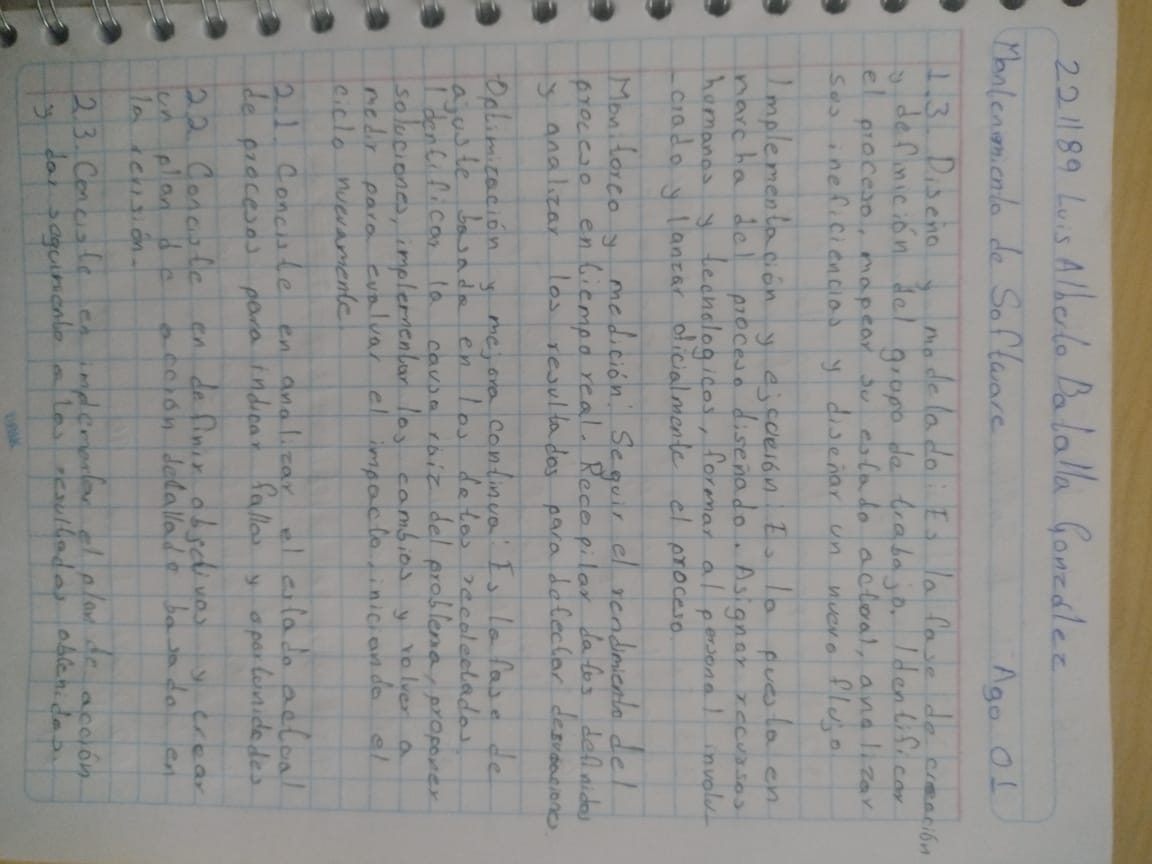 2211189 Luis Alberto Batalla González
Mantenimiento de Software Ago 01
1.3. Diseño y modelado: Es la fase de creación
y definición del grupo de trabajo. Identificar
el proceso, mapear su estado actual, analizar
sus ineficiencias y diseñar un nuevo flujo
Implementación y ejcución: Es la puesta en
marcha del proceso diseñado. Asignar recursos
homanos y tecnologicos, formar al personal involu-
crado y lanzar oficialmente el proceso.
Monitoreo y medición: Seguir el rendimiento del
proceso en tiempo real. Recopilar datos definidos
y analizar los resultados para detectar desviaciones.
Optimización y mejora continua: Es la fase de
ajuste basada en los datos recolectados.
Identificar la causa raíz del problema, proponer
soluciones, implementar los cambios y volver a
medir para evaluar el impacto, iniciando el
ciclo nuevamente
2.1. Conciste en analizar el estado actual
de procesos para indicar fallos y oportunidades
2.2. Conciste en definir objetivos y crear
un plan de acción detallado basado en
la revisión.
2.3. Conciste en implementar el plan de acción
y dar seguimiento a los resultados obtenidos.